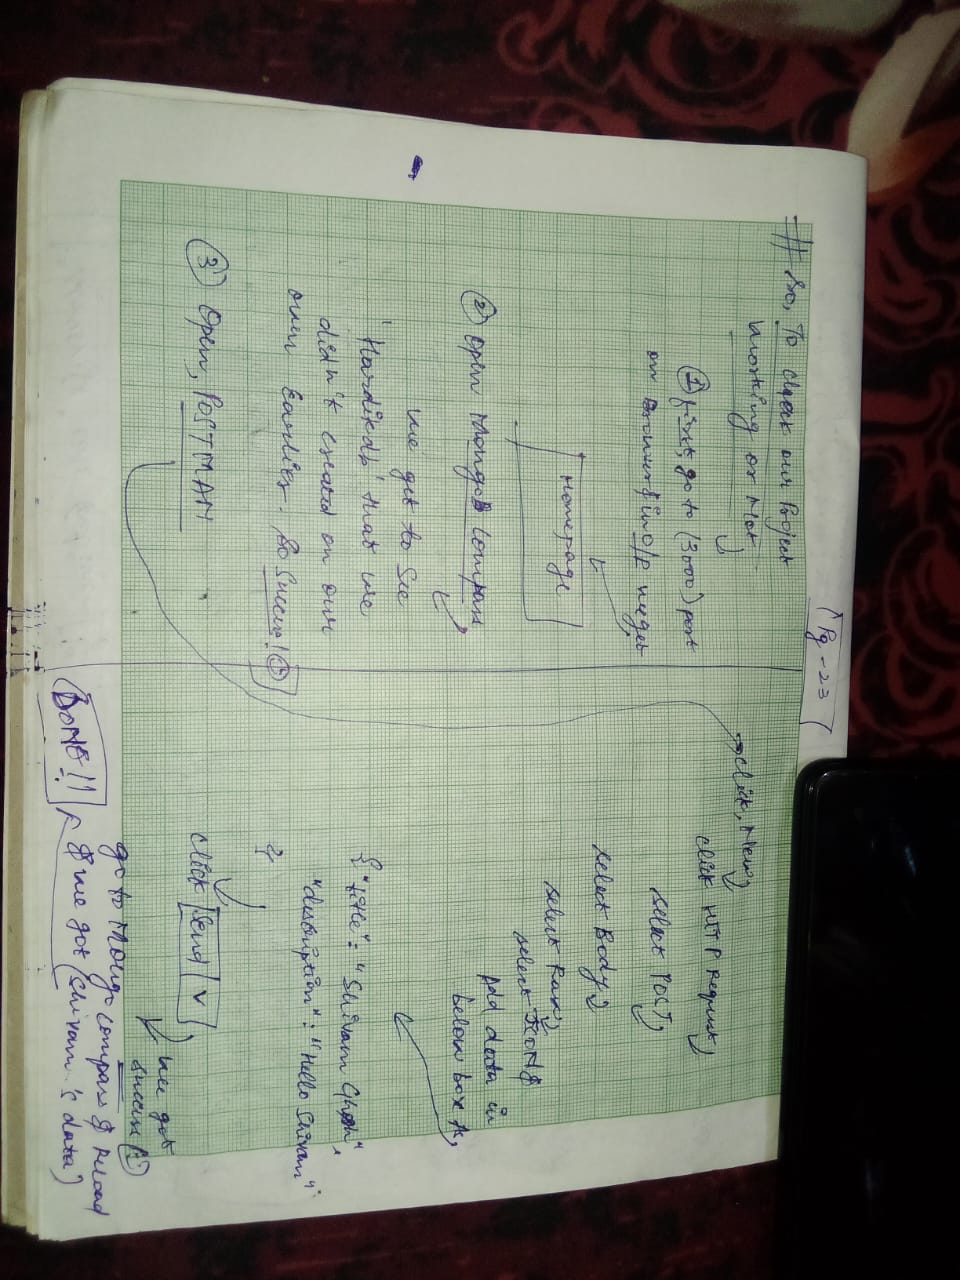 Pg-23
# So, To check our Project
working or Not
① first, go to (3000) port
on Browser & in O/P we get
Homepage
② Open MongoDB Compass
we get to see
'Hardikdb' that we
didn't created on our
own Earlier. So Success! ☺
③ Open, POSTMAN
click, New
click HTTP Request
select POST
select Body
select Raw
select JSON &
Add data in
below box
{ "title": "Shivam",
"discription": "Hello Shivam"
}
click Send v
we got
success ☺
go to Mongo Compass & Reload
& we got (Shivam's data)
DONE!!